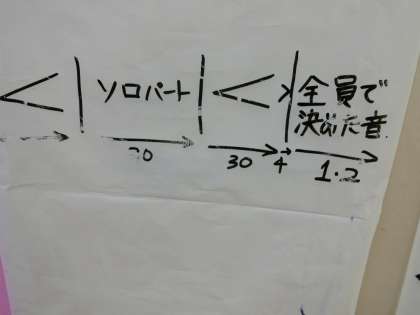 ソロパート
全員で
決めた音
20
30
4
1・2